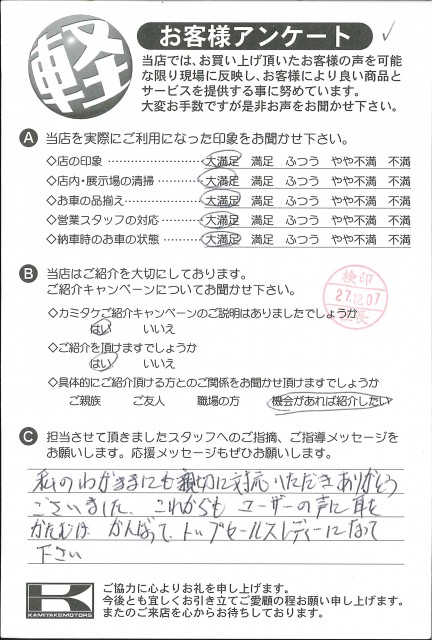 軽
お客様アンケート
当店では、お買い上げ頂いたお客様の声を可能
な限り現場に反映し、お客様により良い商品と
サービスを提供する事に努めています。
大変お手数ですが是非お声をお聞かせ下さい。
A 当店を実際にご利用になった印象をお聞かせ下さい。
◇店の印象 …………………… 大満足 満足 ふつう やや不満 不満
◇店内・展示場の清掃………… 大満足 満足 ふつう やや不満 不満
◇お車の品揃え………………… 大満足 満足 ふつう やや不満 不満
◇営業スタッフの対応………… 大満足 満足 ふつう やや不満 不満
◇納車時のお車の状態………… 大満足 満足 ふつう やや不満 不満
B 当店はご紹介を大切にしております。
ご紹介キャンペーンについてお聞かせ下さい。
検印
27.12.07
長
◇カミタケご紹介キャンペーンのご説明はありましたでしょうか
はい いいえ
◇ご紹介を頂けますでしょうか
はい いいえ
◇具体的にご紹介頂ける方とのご関係をお聞かせ頂けますでしょうか
ご親族 ご友人 職場の方 機会があれば紹介したい
C 担当させて頂きましたスタッフへのご指摘、ご指導メッセージを
お願いします。応援メッセージもぜひお願いします。
私のわがままにも親切に対応いただきありがとう
ございました、これからもユーザーの声に耳を
かたむけ がんばって、トップセールスレディーになって
下さい
K
KAMITAKEMOTORS
ご協力に心よりお礼を申し上げます。
今後とも宜しくお引き立てご愛顧の程お願い申し上げます。
またのご来店を心からお待ちしております。